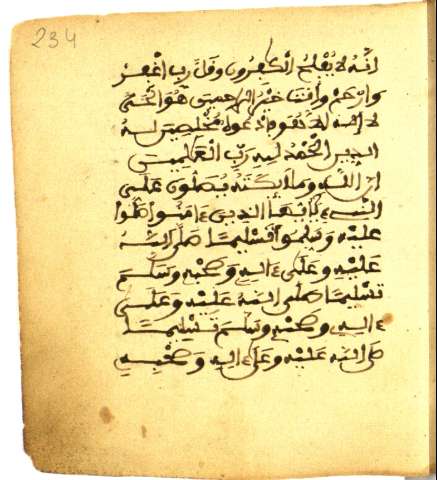 234
انه لا يفلح الكفرون وقل رب اغفر
وارحم وانت خير الرحمين هو الحي
لا اله الا هو فادعوه مخلصين له
الدين الحمد لله رب العلمين
ان الله وملايكته يصلون على
النبيء يايها الذين ءامنوا صلوا
عليه وسلموا تسليما صلى الله
عليه وعلى ءاله وصحبه وسلم
تسليما صلى الله عليه وعلى
ءاله وصحبه وسلم تسليما
صلى الله عليه وعلى ءاله وصحبه